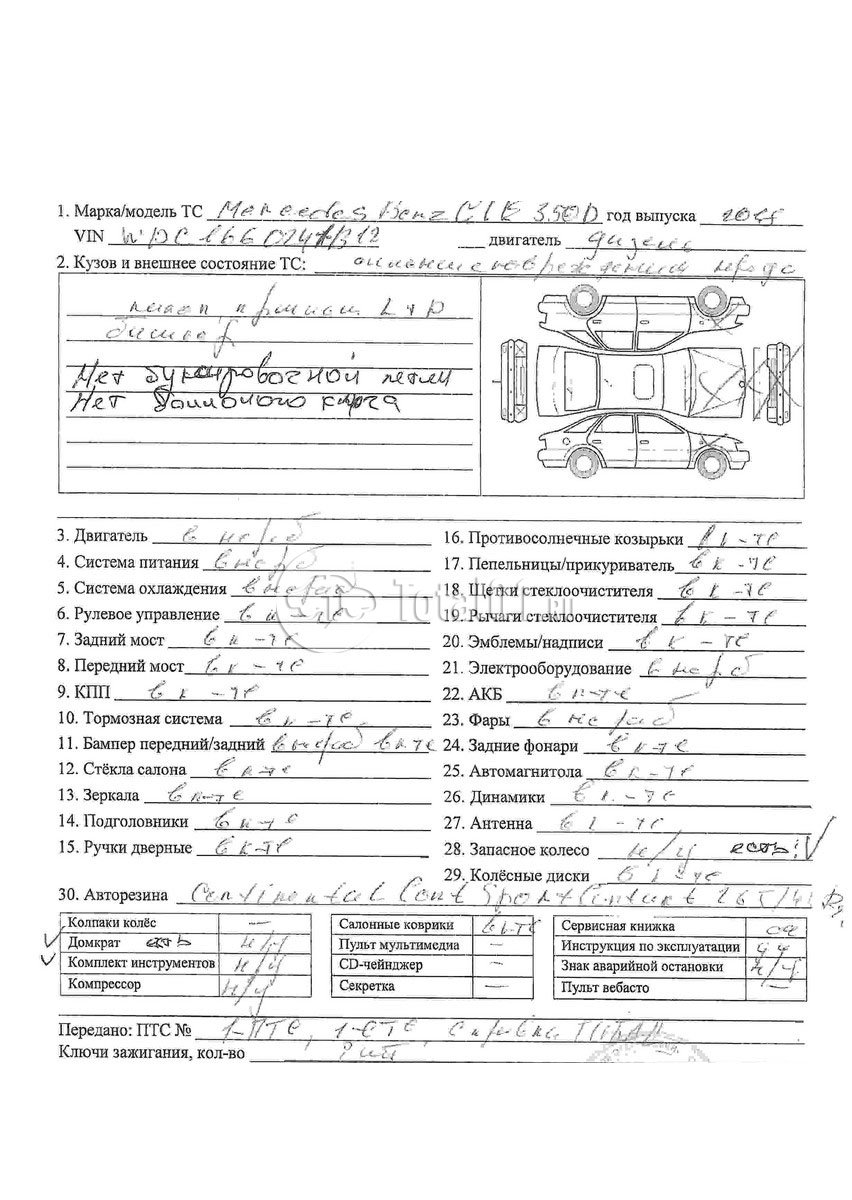 1. Марка/модель ТС Mercedes Benz GLE 350D год выпуска
VIN WDC166024 двигатель дизель
2. Кузов и внешнее состояние ТС: повреждения
L + D
Нет буксировочной петли
Нет болонного ключа
3. Двигатель в нераб
4. Система питания в нераб
5. Система охлаждения в нераб
6. Рулевое управление в к-те
7. Задний мост в к-те
8. Передний мост в к-те
9. КПП в к-те
10. Тормозная система в к-те
11. Бампер передний/задний в нераб в к-те
12. Стёкла салона в к-те
13. Зеркала в к-те
14. Подголовники в к-те
15. Ручки дверные в к-те
16. Противосолнечные козырьки в к-те
17. Пепельницы/прикуриватель в к-те
18. Щетки стеклоочистителя в к-те
19. Рычаги стеклоочистителя в к-те
20. Эмблемы/надписи в к-те
21. Электрооборудование в нераб
22. АКБ в к-те
23. Фары в нераб
24. Задние фонари в к-те
25. Автомагнитола в к-те
26. Динамики в к-те
27. Антенна в к-те
28. Запасное колесо н/у есть!
29. Колёсные диски в к-те
30. Авторезина Continental Cont Sport Contact 265/4
Колпаки колёс —
Домкрат есть н/у
Комплект инструментов н/у
Компрессор н/у
Салонные коврики в к-те
Пульт мультимедиа —
CD-чейнджер —
Секретка —
Сервисная книжка
Инструкция по эксплуатации
Знак аварийной остановки н/у
Пульт вебасто —
Передано: ПТС № 1-ПТС, 1-СТС, справка
Ключи зажигания, кол-во
Total01.ru